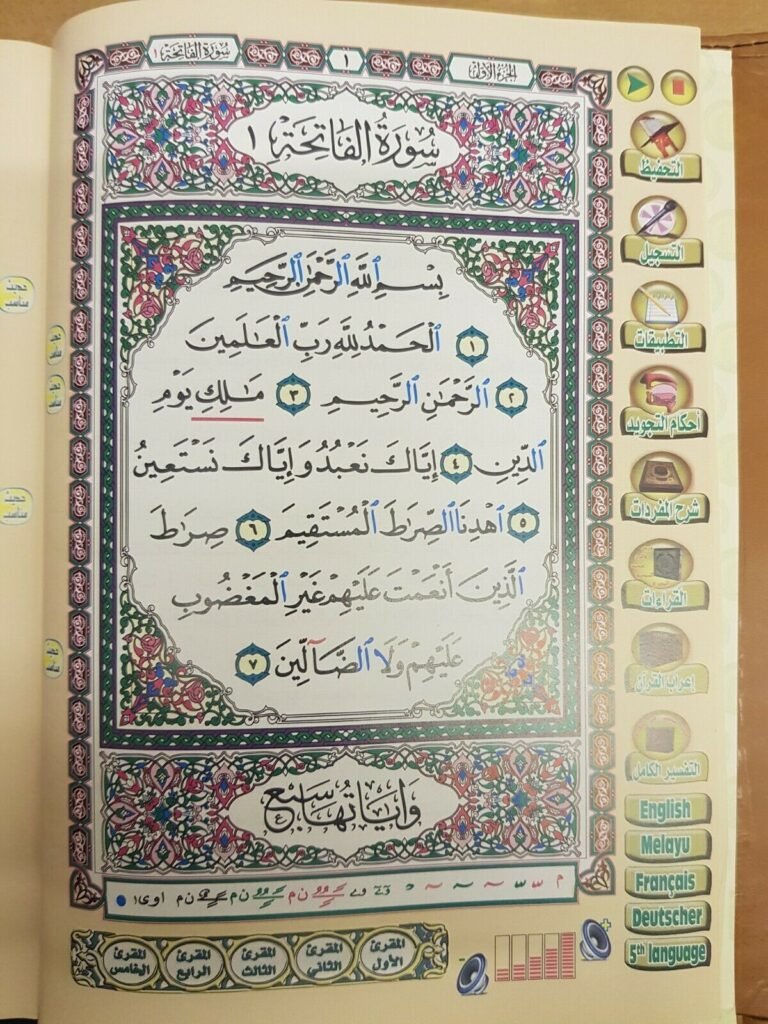 الجزء الأول
١
سُورَةُ الفَاتِحَة ١
سُورَةُ الفَاتِحَةِ ١
بِسْمِ ٱللَّهِ ٱلرَّحْمَٰنِ ٱلرَّحِيمِ
١ ٱلْحَمْدُ لِلَّهِ رَبِّ ٱلْعَٰلَمِينَ
٢ ٱلرَّحْمَٰنِ ٱلرَّحِيمِ ٣ مَٰلِكِ يَوْمِ
ٱلدِّينِ ٤ إِيَّاكَ نَعْبُدُ وَإِيَّاكَ نَسْتَعِينُ
٥ ٱهْدِنَا ٱلصِّرَٰطَ ٱلْمُسْتَقِيمَ ٦ صِرَٰطَ
ٱلَّذِينَ أَنْعَمْتَ عَلَيْهِمْ غَيْرِ ٱلْمَغْضُوبِ
عَلَيْهِمْ وَلَا ٱلضَّآلِّينَ ٧
وَآيَاتُهَا سَبْعٌ
التحفيظ
التسجيل
التطبيقات
أحكام التجويد
شرح المفردات
القراءات
إعراب القرآن
التفسير الكامل
English
Melayu
Français
Deutscher
5th language
المقرئ الأول
المقرئ الثاني
المقرئ الثالث
المقرئ الرابع
المقرئ الخامس
حديث مناسب
حديث مناسب
حديث مناسب
حديث مناسب
حديث مناسب